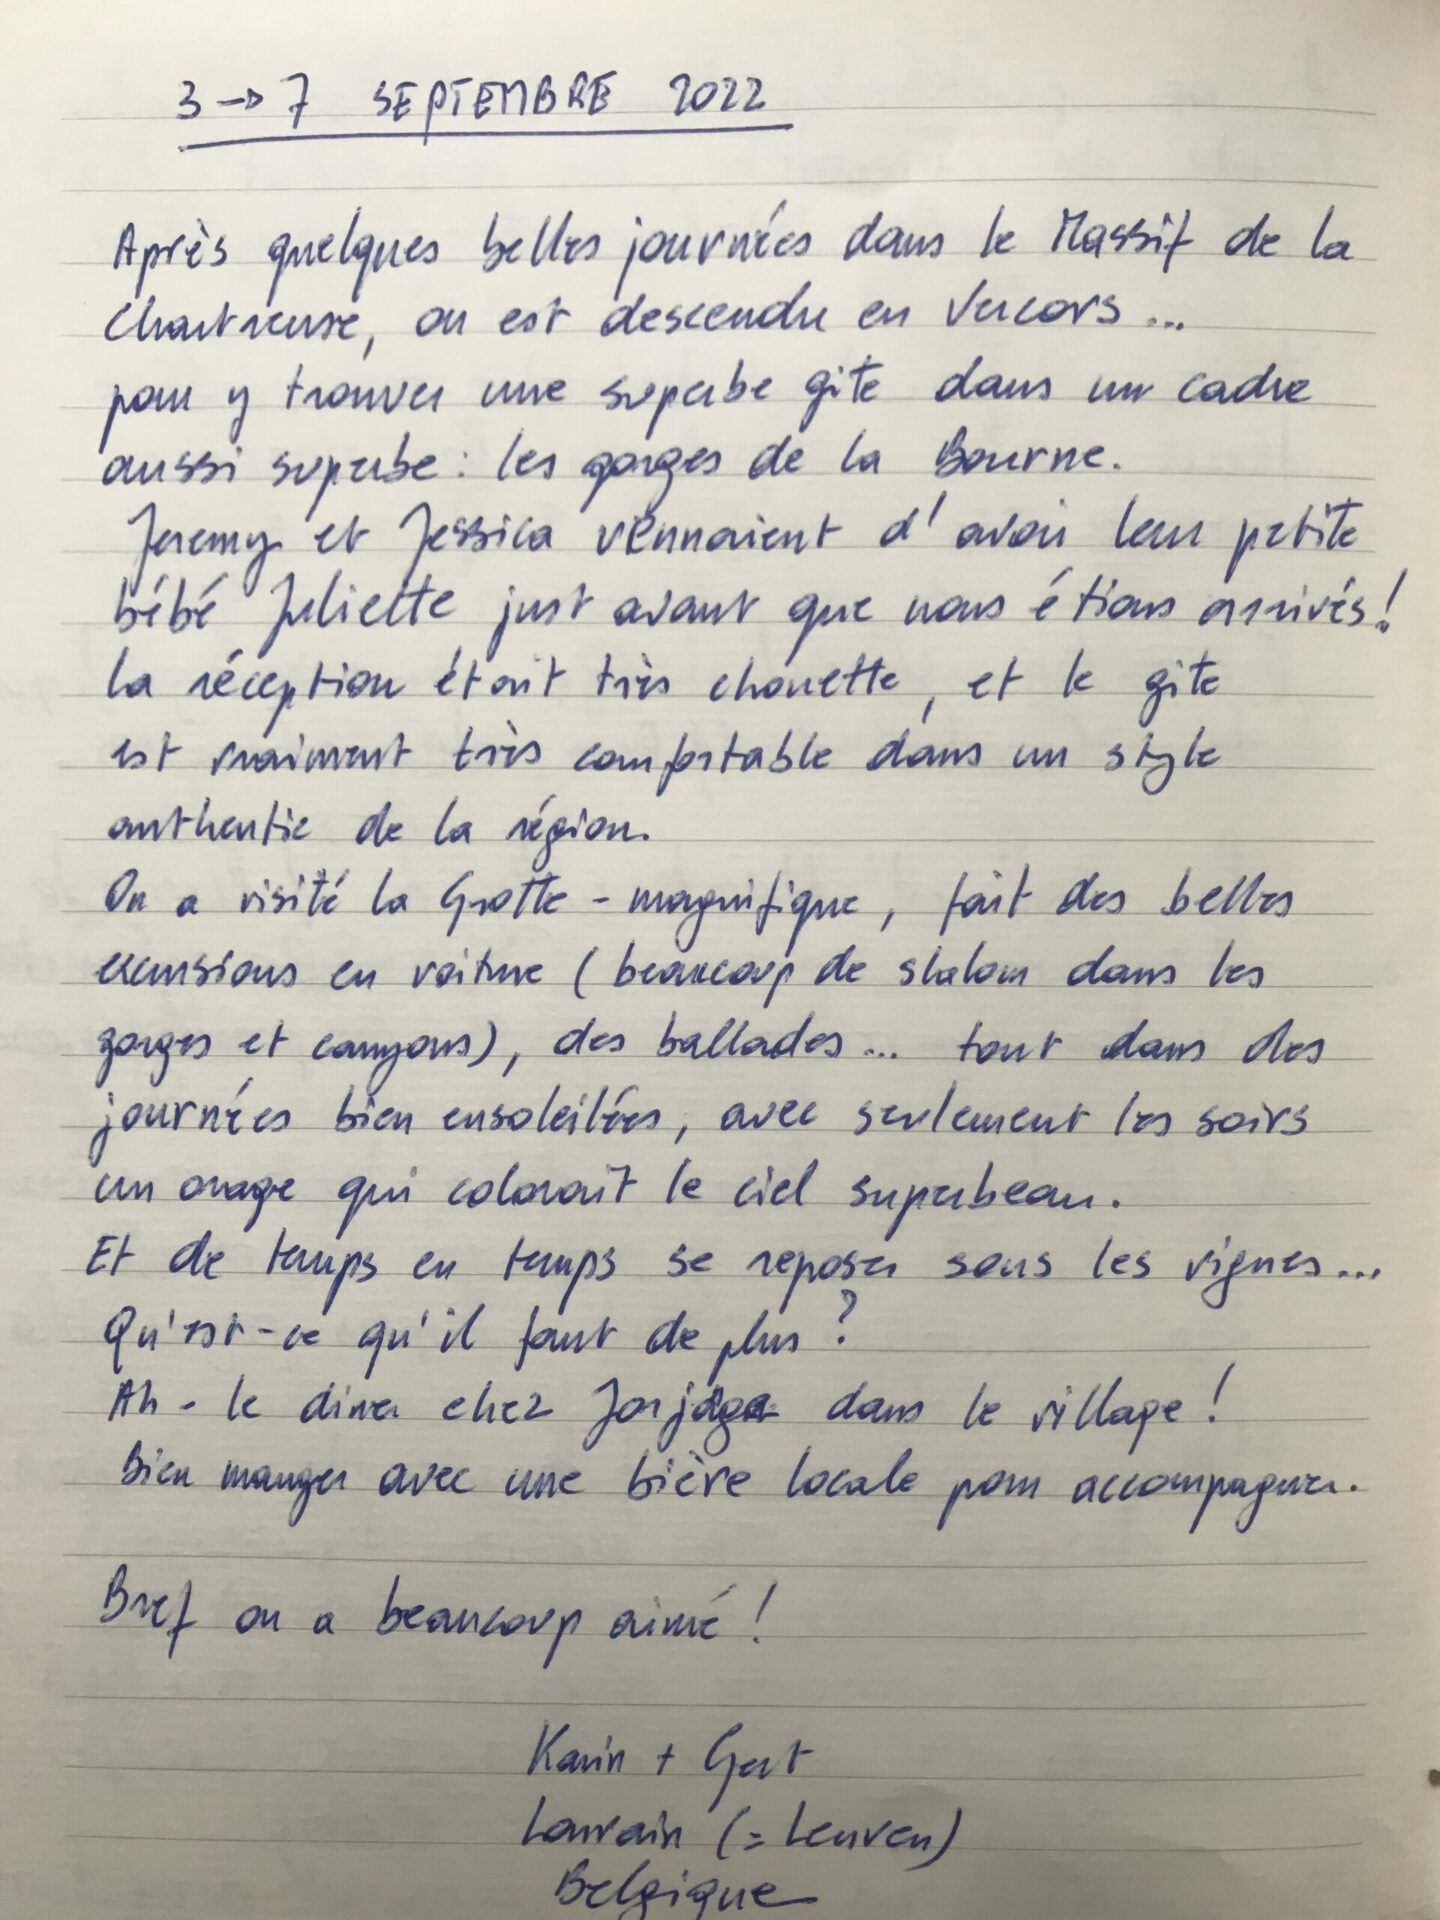 3 → 7 SEPTEMBRE 2022
Après quelques belles journées dans le Massif de la
Chartreuse, on est descendu en Vercors...
pour y trouver une superbe gite dans un cadre
aussi superbe : les gorges de la Bourne.
Jeremy et Jessica viennaient d'avoir leur petite
bébé Juliette just avant que nous étions arrivés!
la réception était très chouette, et le gite
est vraiment très comfortable dans un style
authentic de la région.
On a visité la Grotte - magnifique, fait des belles
excursions en voiture (beaucoup de slalom dans les
gorges et canyons), des ballades... tout dans des
journées bien ensoleilées, avec seulement les soirs
un orage qui colorait le ciel superbeau.
Et de temps en temps se reposer sous les vignes...
Qu'est-ce qu'il faut de plus ?
Ah - le diner chez dans le village !
Bien manger avec une bière locale pour accompagner.
Bref on a beaucoup aimé !
Karin + Gert
Louvain (= Leuven)
Belgique